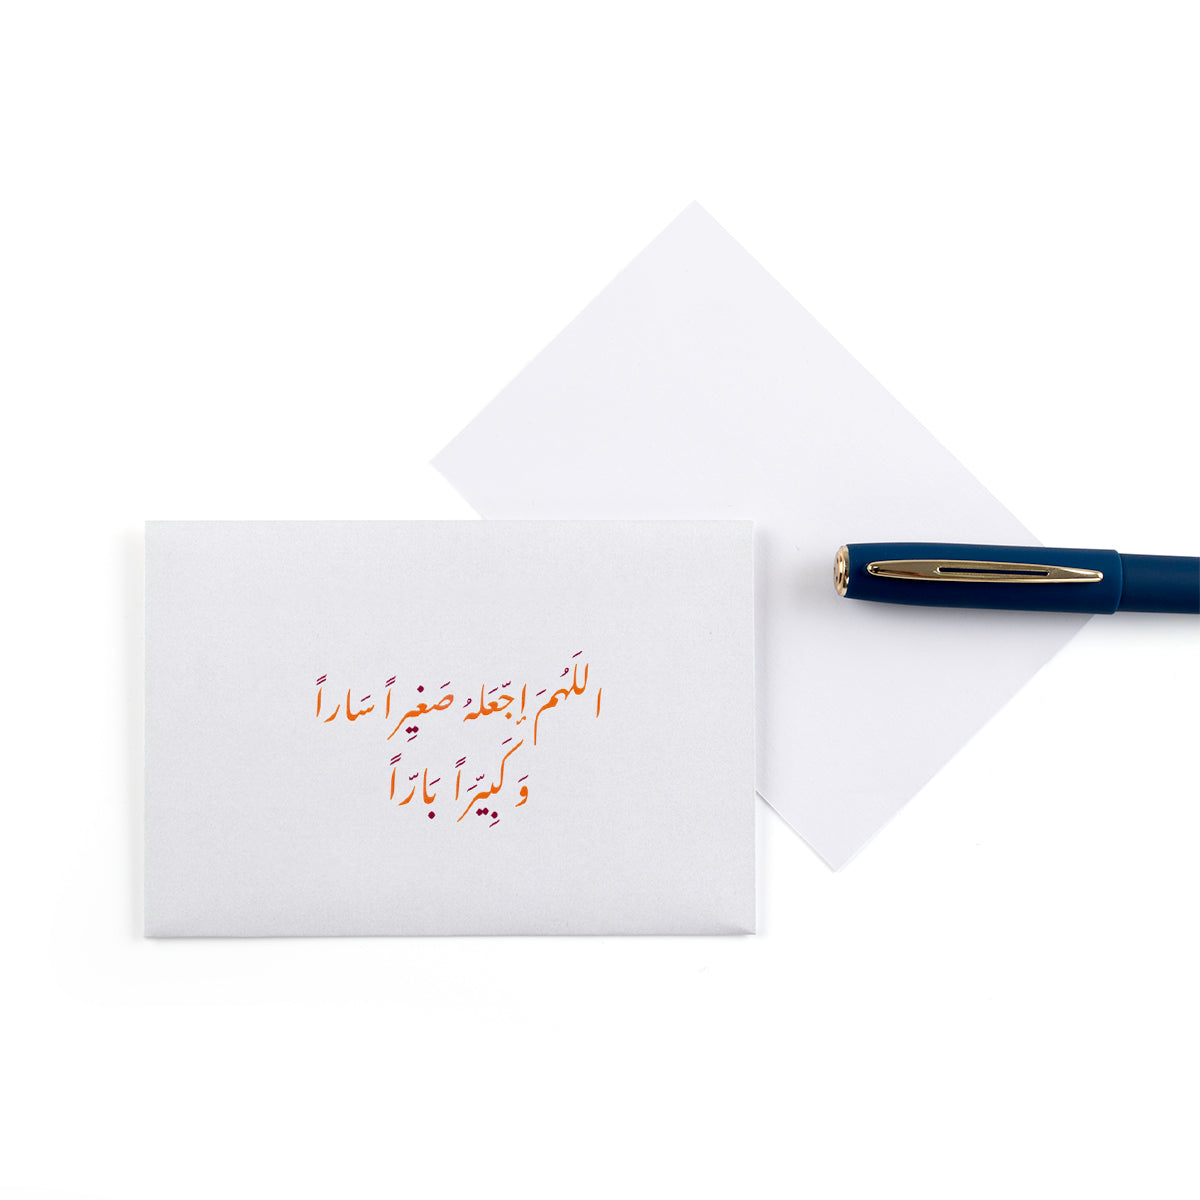 اللَهُمَ إجّعَلهُ صَغيِراً سَاراً
وَكَبِيّرَاً بَارّاً